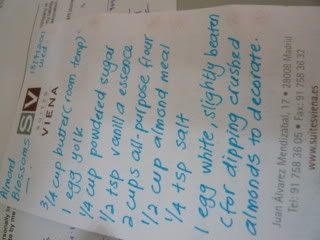 Almond
Blossoms
SV
SUITES
VIENA
3/4 cup butter (room temp)
1 egg yolk
1/4 cup powdered sugar
1/2 tsp vanilla essence
2 cups all-purpose flour
1/2 cup almond meal
1/4 tsp salt
1 egg white, slightly beaten
(for dipping crushed
almonds to decorate.
Juan Álvarez Mendizábal, 17 • 28008 Madrid
Tel: 91 758 36 05 • Fax: 91 758 36 32
www.suitesviena.es